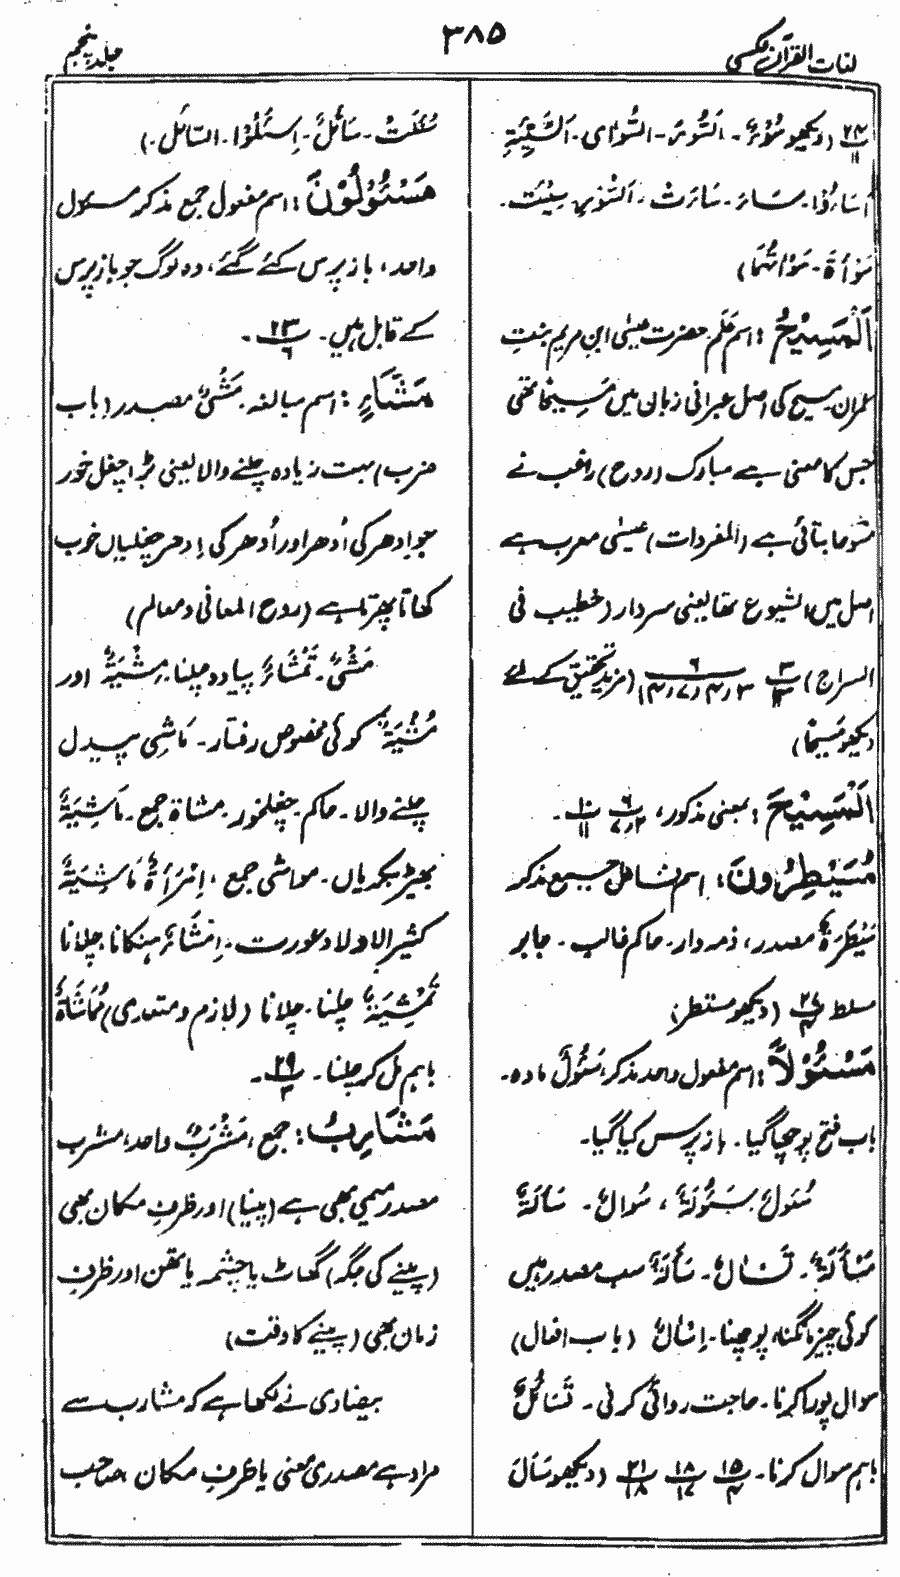 لغات القرآن عکسی
۳۸۵
جلد پنجم
۲۴ (دیکھو سُوْءٌ۔ اَلسُّوْءَ۔ السُّوْاٰی۔ اَلسَّیِّئَۃِ
اَسَاءُوْا۔ سَاءَ۔ سَاءَتْ۔ اَلسُّوْءِ۔ سِیْئَتْ۔
سَوْأَۃَ۔ سَوْاٰتُهُمَا)
اَلْمَسِیْحُ: اسم عَلَم حضرت عیسٰی ابن مریم بنتِ
عمران مسیح کی اصل عبرانی زبان میں مَسِیْحَا تھی
جس کا معنی ہے مبارک (روح) راغب نے
مشوحا بتائی ہے (المفردات) عیسٰی معرب ہے
اصل میں الشیوع تھا یعنی سردار (خطیب فی
السراج) ۳ ۱۳ ۶ ۳،۴،۷،۱۴ (مزید تحقیق کے لئے
دیکھو مَسِیْحًا)
اَلْمَسِیْحَ: بمعنی مذکور، ۶ ۲،۷ ۱۰ ۱۱۔
مُسَیْطِرُوْنَ: اسم فاعل جمع مذکر
سَیْطَرَۃٌ مصدر، ذمہ دار۔ حاکم غالب۔ جابر
مسلط ۲۷ ۴ (دیکھو مستطر)
مَسْئُوْلًا: اسم مفعول واحد مذکر، سَئُوْلٌ مادہ۔
باب فتح پوچھا گیا۔ باز پرس کیا گیا۔
سُئُوْلٌ، سَئُوْلَۃٌ، سُوالٌ۔ سَاَلَۃٌ
مَسْأَلَۃٌ۔ تَسْاٰلٌ۔ سَأَلَۃٌ سب مصدر ہیں
کوئی چیز مانگنا، پوچھنا۔ اِسْاٰلٌ (باب افعال)
سوال پورا کرنا۔ حاجت روائی کرنی۔ تَسَائُلٌ
باہم سوال کرنا۔ ۱۵ ۴ ۱۸ ۱۷ ۲۱ ۱۸ (دیکھو سَأَلَ
سُئِلَتْ۔ سَائِلٌ۔ اِسْئَلُوْا۔ السائل۔)
مَسْئُوْلُوْنَ: اسم مفعول جمع مذکر مسئول
واحد، باز پرس کئے گئے، وہ لوگ جو باز پرس
کے قابل ہیں۔ ۲۳ ۶۔
مَشَّاءٍ: اسم مبالغہ۔ مَشْیٌ مصدر (باب
ضرب) بہت زیادہ چلنے والا یعنی بڑا چغل خور
جو ادھر کی اُدھر اور اُدھر کی اِدھر چغلیاں خوب
کھاتا پھرتا ہے (روح المعانی و معالم)
مَشْیٌ۔ تَمْشَاءٌ پیادہ چلنا۔ مِشْیَۃٌ اور
مُشْیَۃٌ کوئی مخصوص رفتار۔ مَاشِی پیدل
چلنے والا۔ حاکم۔ چغلخور۔ مشاۃ جمع۔ مَاشِیَۃٌ
بھیڑ بکریاں۔ مواشی جمع، اِمْرَأَۃٌ مَاشِیَۃٌ
کثیر الاولاد عورت۔ اِمْشَاءٌ ہنکانا، چلانا
تَمْشِیَۃٌ چلنا۔ چلانا (لازم و متعدی) مُمَاشَاۃٌ
باہم مل کر چلنا۔ ۲۹ ۳۔
مَشَارِبُ: جمع، مَشْرَبٌ واحد، مشرب
مصدر میمی بھی ہے (پینا) اور ظرفِ مکان بھی
(پینے کی جگہ) گھاٹ یا چشمہ یا تھن اور ظرفِ
زمان بھی (پینے کا وقت)
بیضاوی نے لکھا ہے کہ مشارب سے
مراد ہے مصدری معنی یا ظرفِ مکان، صاحب